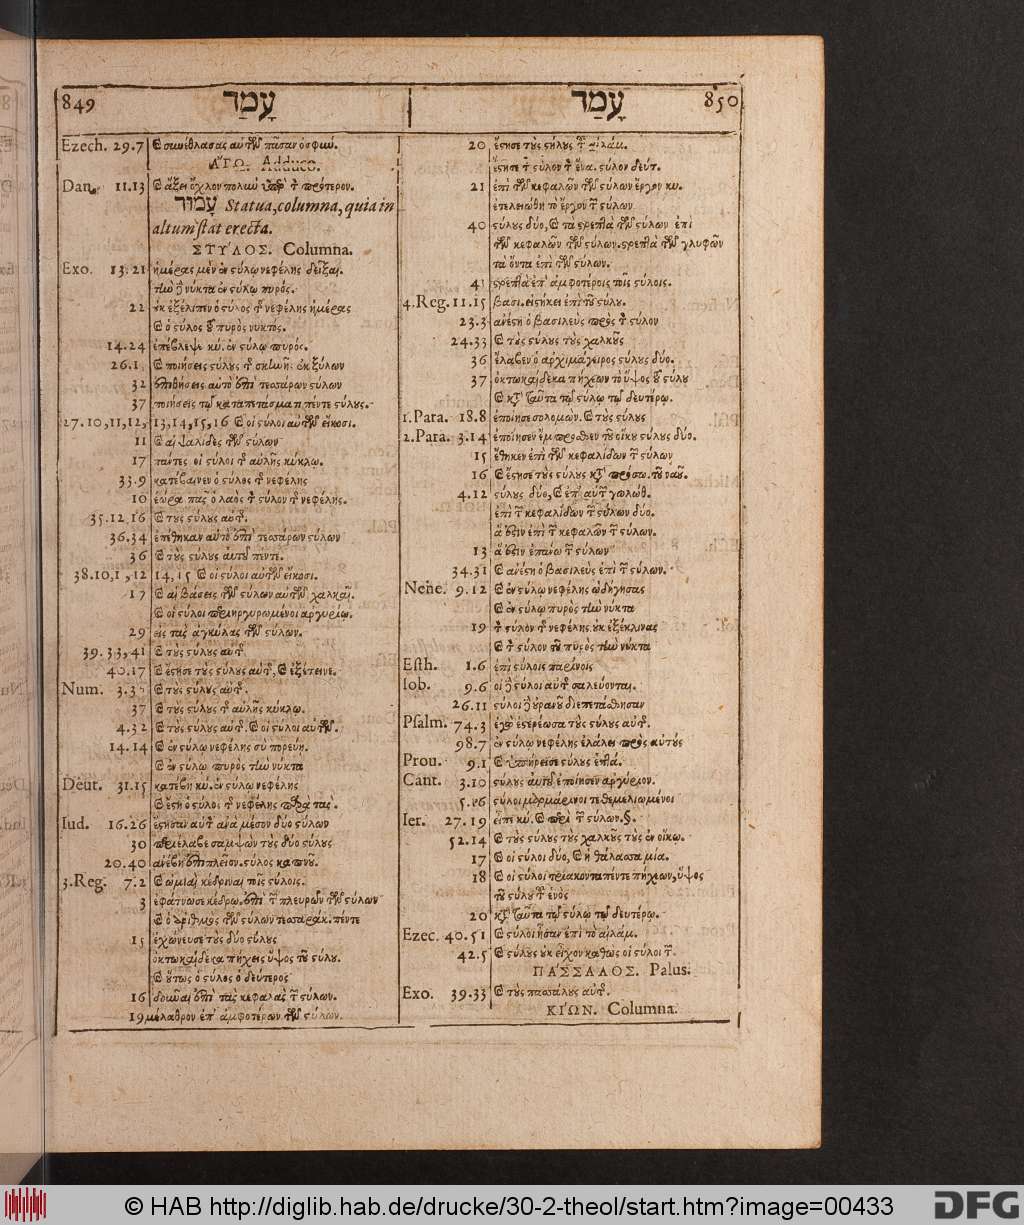 849 עָמַד
Ezech. 29.7 ϗ συνέθλασας αὐτῶν πᾶσαν ὀσφύν.
ἌΓΩ. Adduco.
Dan. 11.13 ϗ ἄξει ὄχλον πολὺν ὑπὲρ τ πρότερον.
עַמּוּד Statua, columna, quia in
altum stat erecta.
ΣΤΥ͂ΛΟΣ. Columna.
Exo. 13.21 ἡμέρας μὲν ἐν στύλῳ νεφέλης δεῖξαι.
τὴν δὲ νύκτα ἐν στύλῳ πυρός.
22 οὐκ ἐξέλιπεν ὁ στύλος τ νεφέλης ἡμέρας
ϗ ὁ στύλος τοῦ πυρὸς νυκτός.
14.24 ἐπέβλεψε κύ. ἐν στύλῳ πυρός.
26.1 ϗ ποιήσεις στύλους τ σκηνῇ ἐκ ξύλων
32 ἐπιθήσεις αὐτὸ ἐπὶ τεσσάρων στύλων
37 ποιήσεις τῷ καταπετάσματι πέντε στύλους.
27.10,11,12, 13,14,15,16 ϗ οἱ στύλοι αὐτῶν εἴκοσι.
11 ϗ αἱ ψαλίδες τῶν στύλων
17 πάντες οἱ στύλοι τ αὐλῆς κύκλῳ.
33.9 κατέβαινεν ὁ στύλος τ νεφέλης
10 ἑώρα πᾶς ὁ λαὸς τ στύλον τ νεφέλης.
35.12 16 ϗ τοὺς στύλους αὐτ.
36.34 ἐπέθηκαν αὐτὸ ἐπὶ τεσσάρων στύλων
36 ϗ τοὺς στύλους αὐτοῦ πέντε.
38.10,1,12 14,15 ϗ οἱ στύλοι αὐτῶν εἴκοσι.
17 ϗ αἱ βάσεις τῶν στύλων αὐτῶν χαλκαῖ.
ϗ οἱ στύλοι περιηργυρωμένοι ἀργυρίῳ.
29 εἰς τὰς ἀγκύλας τῶν στύλων.
39.33,41 ϗ τοὺς στύλους αὐτ
40.17 ϗ ἔστησε τοὺς στύλους αὐτ, ϗ ἐξέτεινε.
Num. 3.3 ϗ τοὺς στύλους αὐτ.
37 ϗ τοὺς στύλους τ αὐλῆς κύκλῳ.
4.32 ϗ τοὺς στύλους αὐτ. ϗ οἱ στύλοι αὐτῶν.
14.14 ϗ ἐν στύλῳ νεφέλης σὺ πορεύῃ.
ϗ ἐν στύλῳ πυρὸς τὴν νύκτα
Deut. 31.15 κατέβη κύ. ἐν στύλῳ νεφέλης
ϗ ἔστη ὁ στύλος τ νεφέλης παρὰ τὰς.
Iud. 16.26 ἔστησαν αὐτ ἀνὰ μέσον δύο στύλων
30 περιέλαβε σαμψὼν τοὺς δύο στύλους
20.40 ἀνέβη ἐπὶ πλεῖον. στύλος καπνοῦ.
3.Reg. 7.2 ϗ ὠμίαι κέδριναι τοῖς στύλοις.
3 ἐφάτνωσε κέδρῳ. ἐπὶ τ πλευρῶν τῶν στύλων
ϗ ὁ ἀριθμὸς τῶν στύλων τεσσαράκ. πέντε
15 ἐχώνευσε τοὺς δύο στύλους
ὀκτωκαίδεκα πήχεις ὕψος τοῦ στύλου.
ϗ οὕτως ὁ στύλος ὁ δεύτερος
16 δοῦναι ἐπὶ τὰς κεφαλὰς τ στύλων.
19 μέλαθρον ἐπ' ἀμφοτέρων τῶν στύλων.
עָמַד 850
20 ἔστησε τοὺς στύλους τ αἰλάμ.
ἔστησε τ στύλον τ ἕνα. στύλον δεύτ.
21 ἐπὶ τῶν κεφαλῶν τῶν στύλων ἔργον κυ.
ἐτελειώθη τὸ ἔργον τ στύλων
40 στύλους δύο, ϗ τὰ στρεπτὰ τῶν στύλων ἐπὶ
τῶν κεφαλῶν τῶν στύλων. στρεπτὰ τῶν γλυφῶν
τὰ ὄντα ἐπὶ τῶν στύλων.
41 στρεπτὰ ἐπ' ἀμφοτέροις τοῖς στύλοις.
4.Reg. 11.15 βασι. εἱστήκει ἐπὶ τοῦ στύλου.
23.3 ἀνέστη ὁ βασιλεὺς πρὸς τ στύλον
24.33 ϗ τοὺς στύλους τοὺς χαλκοῦς
36 ἔλαβεν ὁ ἀρχιμάγειρος στύλους δύο.
37 ὀκτωκαίδεκα πήχεων τὸ ὕψος τοῦ στύλου
ϗ κτ ταῦτα τῷ στύλῳ τῷ δευτέρῳ.
1.Para. 18.8 ἐποίησε σολομών. ϗ τοὺς στύλους
2.Para. 3.14 ἐποίησεν ἔμπροσθεν τοῦ οἴκου στύλους δύο.
15 ἔθηκεν ἐπὶ τῶν κεφαλίδων τ στύλων
16 ϗ ἔστησε τοὺς στύλους κτ πρόσω. τοῦ ναοῦ.
4.12 στύλους δύο, ϗ ἐπ' αὐτ γωλώθ.
ἐπὶ τ κεφαλίδων τ στύλων δύο.
ἅ ἐστιν ἐπὶ τ κεφαλῶν τ στύλων.
13 ἅ ἐστιν ἐπάνω τ στύλων
34.31 ϗ ἀνέστη ὁ βασιλεὺς ἐπὶ τ στύλων.
Nehe. 9.12 ϗ ἐν στύλῳ νεφέλης ὡδήγησας
ϗ ἐν στύλῳ πυρὸς τὴν νύκτα
19 τ στύλον τ νεφέλης οὐκ ἐξέκλινας
ϗ τ στύλον τοῦ πυρὸς τὴν νύκτα
Esth. 1.6 ἐπὶ στύλοις παρίνοις
Iob. 9.6 οἱ δὲ στύλοι αὐτ σαλεύονται.
26.11 στύλοι δὲ οὐρανοῦ διεπετάσθησαν
Psalm. 74.3 ἐγὼ ἐστερέωσα τοὺς στύλους αὐτ.
98.7 ἐν στύλῳ νεφέλης ἐλάλει πρὸς αὐτούς
Prou. 9.1 ϗ ὑπήρεισε στύλους ἑπτά.
Cant. 3.10 στύλους αὐτοῦ ἐποίησεν ἀργύριον.
5.16 στύλοι μαρμάρινοι τεθεμελιωμένοι
Ier. 27.19 εἶπε κύ. ϗ περὶ τ στύλων. §.
52.14 ϗ τοὺς στύλους τοὺς χαλκοῦς τοὺς ἐν οἴκῳ.
17 ϗ οἱ στύλοι δύο, ϗ ἡ θάλασσα μία.
18 ϗ οἱ στύλοι τριακονταπέντε πήχεων, ὕψος
τοῦ στύλου τ ἑνὸς
20 κτ ταῦτα τῷ στύλῳ τῷ δευτέρῳ.
Ezec. 40.51 ϗ στύλοι ἦσαν ἐπὶ τὸ αἰλάμ.
42.5 ϗ στύλους οὐκ εἶχον καθὼς οἱ στύλοι τ.
ΠΆΣΣΑΛΟΣ. Palus.
Exo. 39.33 ϗ τοὺς πασσάλους αὐτ.
ΚΊΩΝ. Columna.
© HAB http://diglib.hab.de/drucke/30-2-theol/start.htm?image=00433
DFG